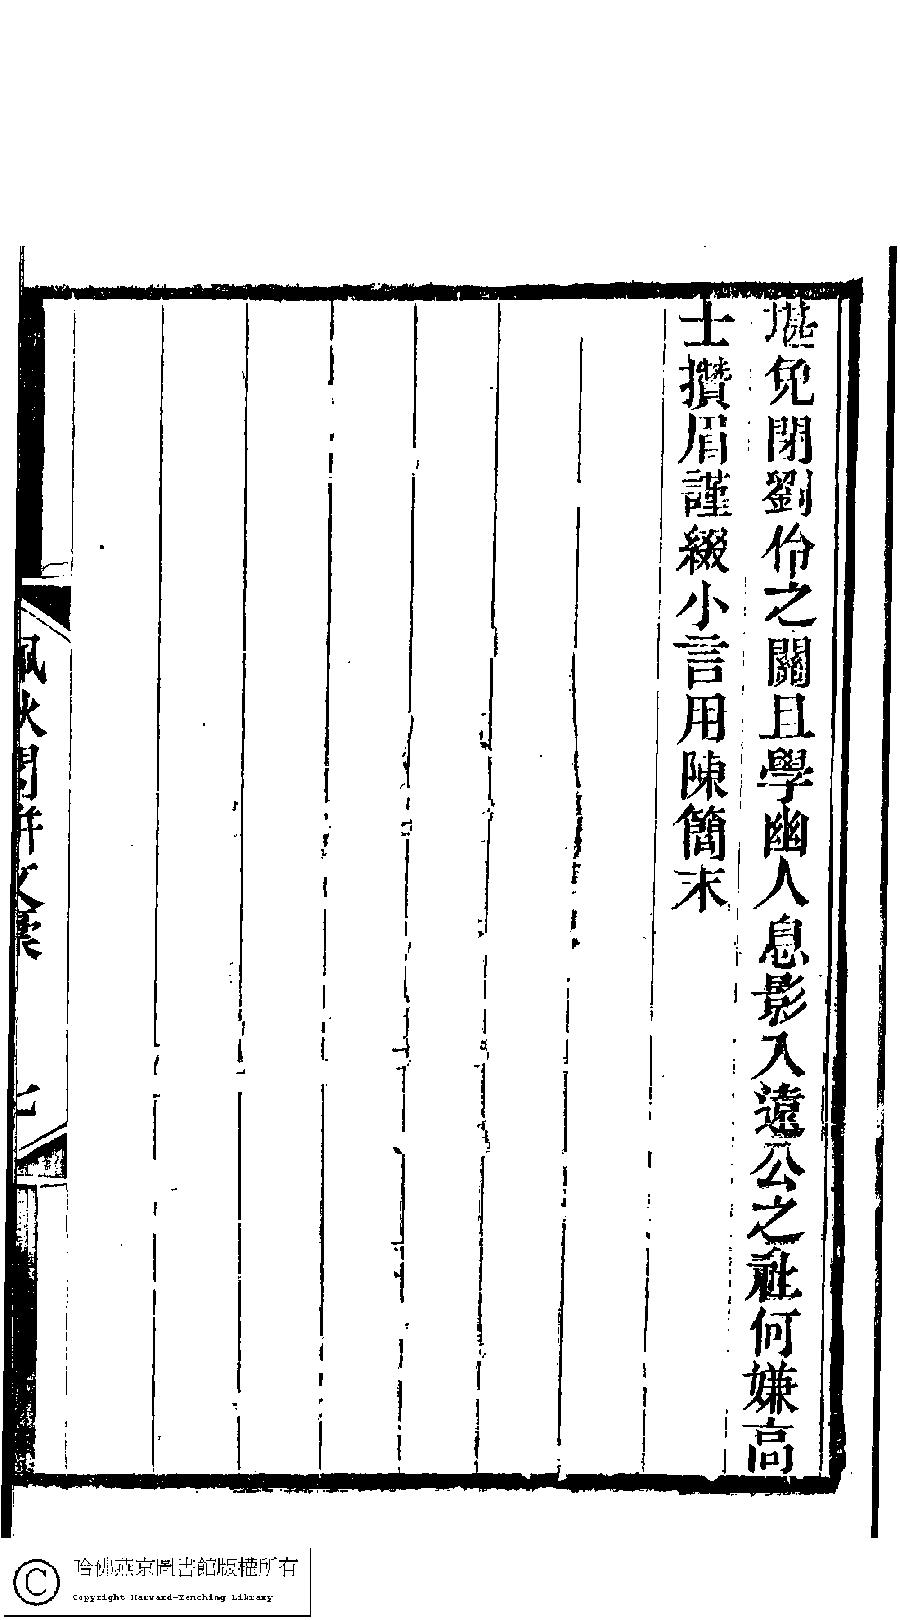 堪免閉劉伶之關且學幽人息影入遠公之社何嫌高
士攢眉謹綴小言用陳簡末
哈佛燕京圖書館版權所有
Copyright Harvard-Yenching Library